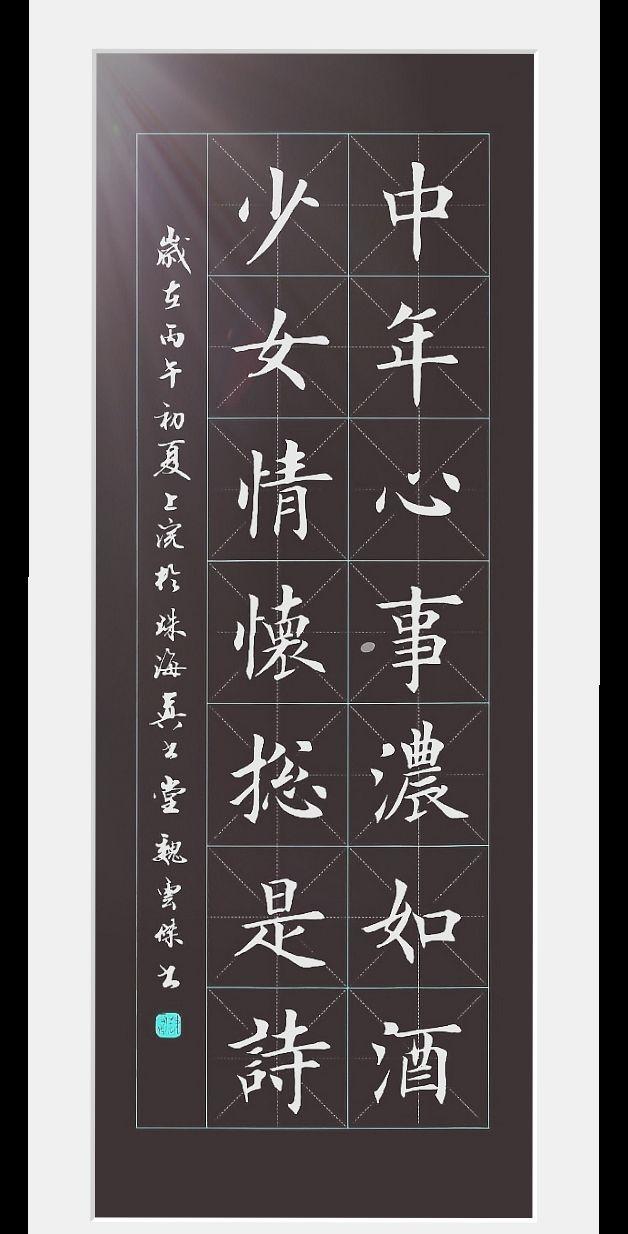 中年心事濃如酒
少女情懷捴是詩
歲在丙午初夏上浣於珠海真書堂魏雲傑書